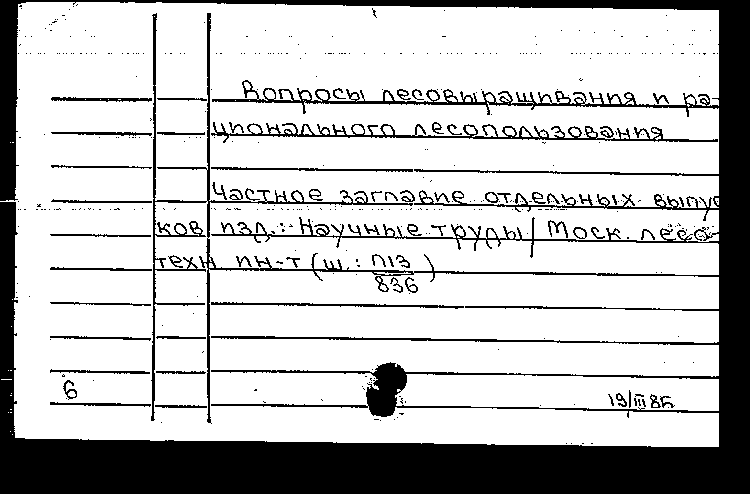 Вопросы лесовыращивания и ра-
ционального лесопользования
Частное заглавие отдельных выпус
ков изд.: Научные труды / Моск. лесо-
техн. ин-т (ш.: П13/836)
6 19/III 85